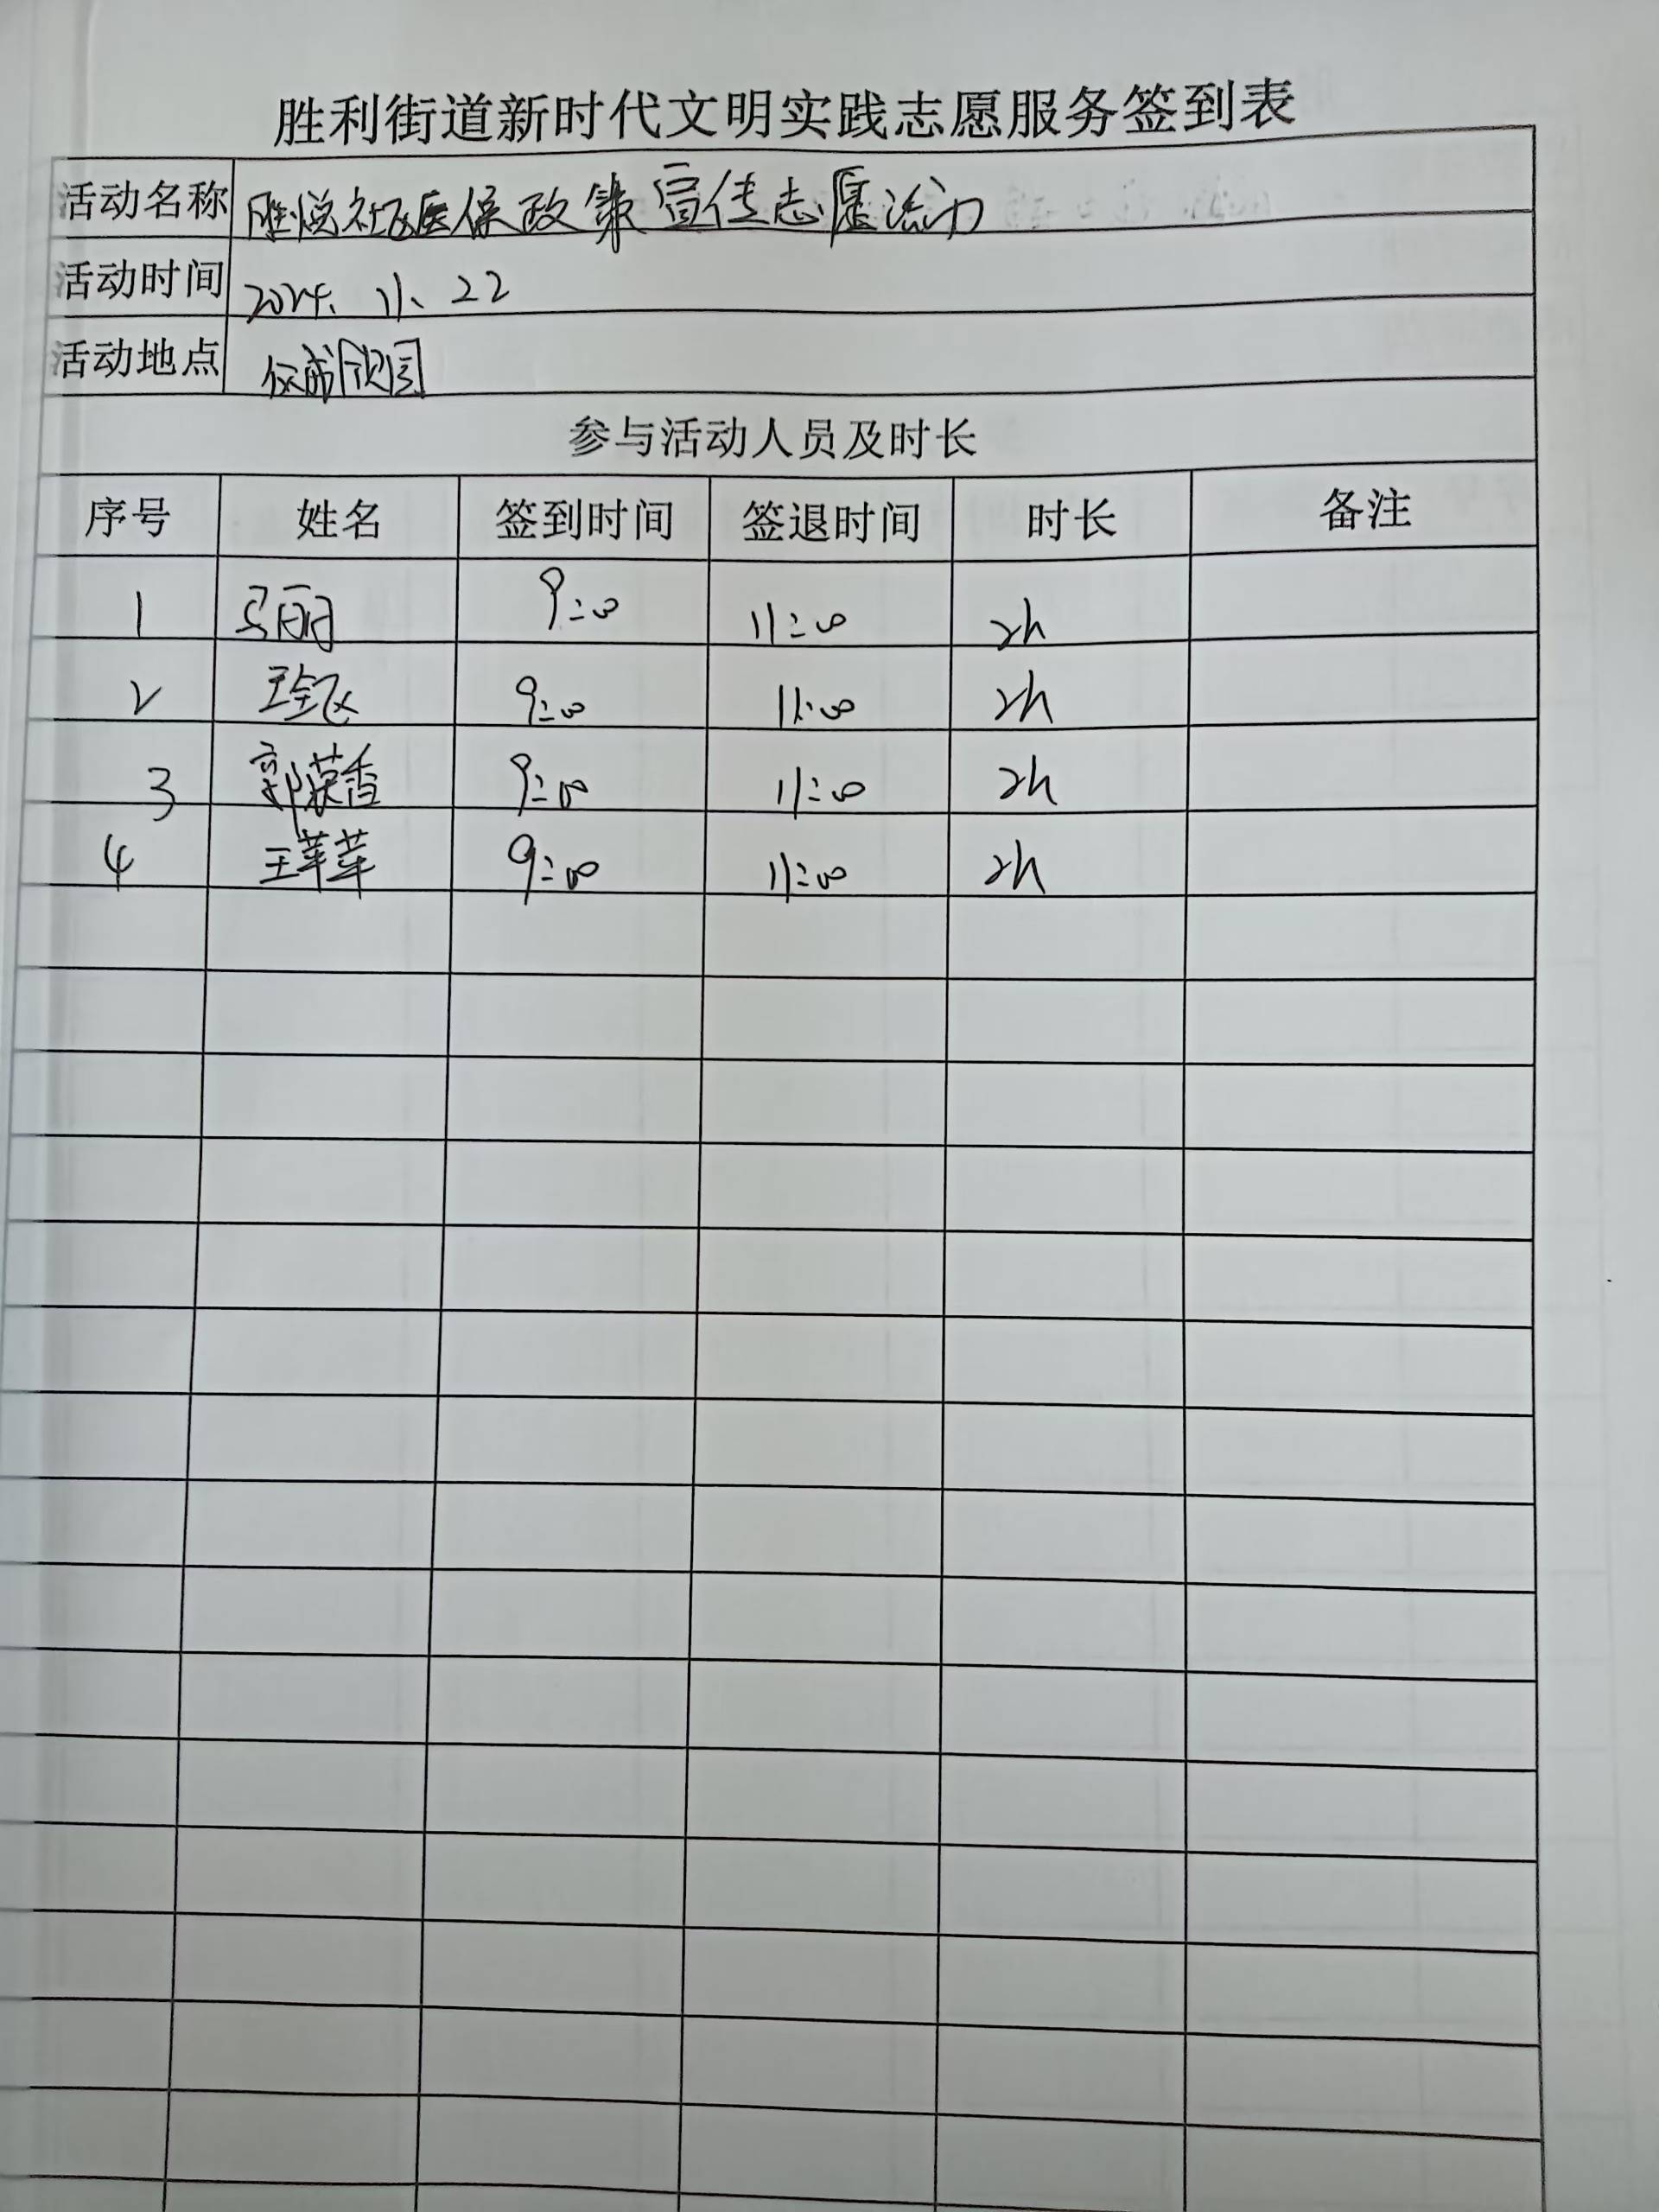 胜利街道新时代文明实践志愿服务签到表
活动名称 胜悦社区医保政策宣传志愿活动
活动时间 2024、11、22
活动地点 颐园
参与活动人员及时长
序号 姓名 签到时间 签退时间 时长 备注
1 马丽 9:00 11:00 2h
2 王全飞 9:00 11:00 2h
3 郭荣香 9:00 11:00 2h
4 王苹苹 9:00 11:00 2h